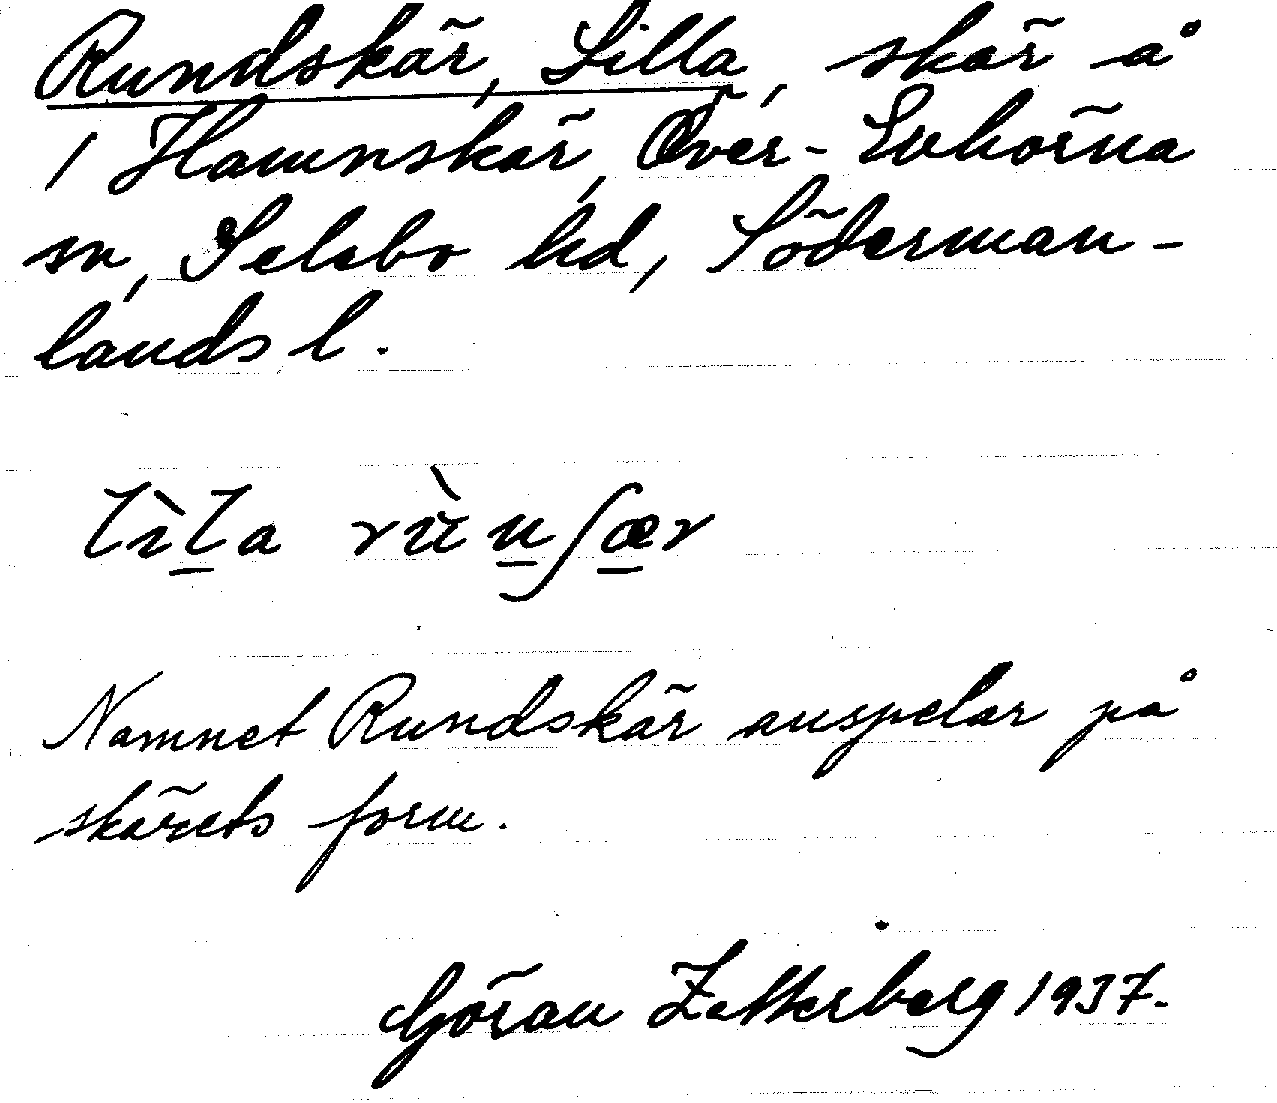 Rundskär, Lilla, skär å
1 Hamnskär, Över-Enhörna
sn, Selebo hd, Söderman-
lands l.
lìla rùnʃær
Namnet Rundskär anspelar på
skärets form.
Göran Zetterberg 1937.